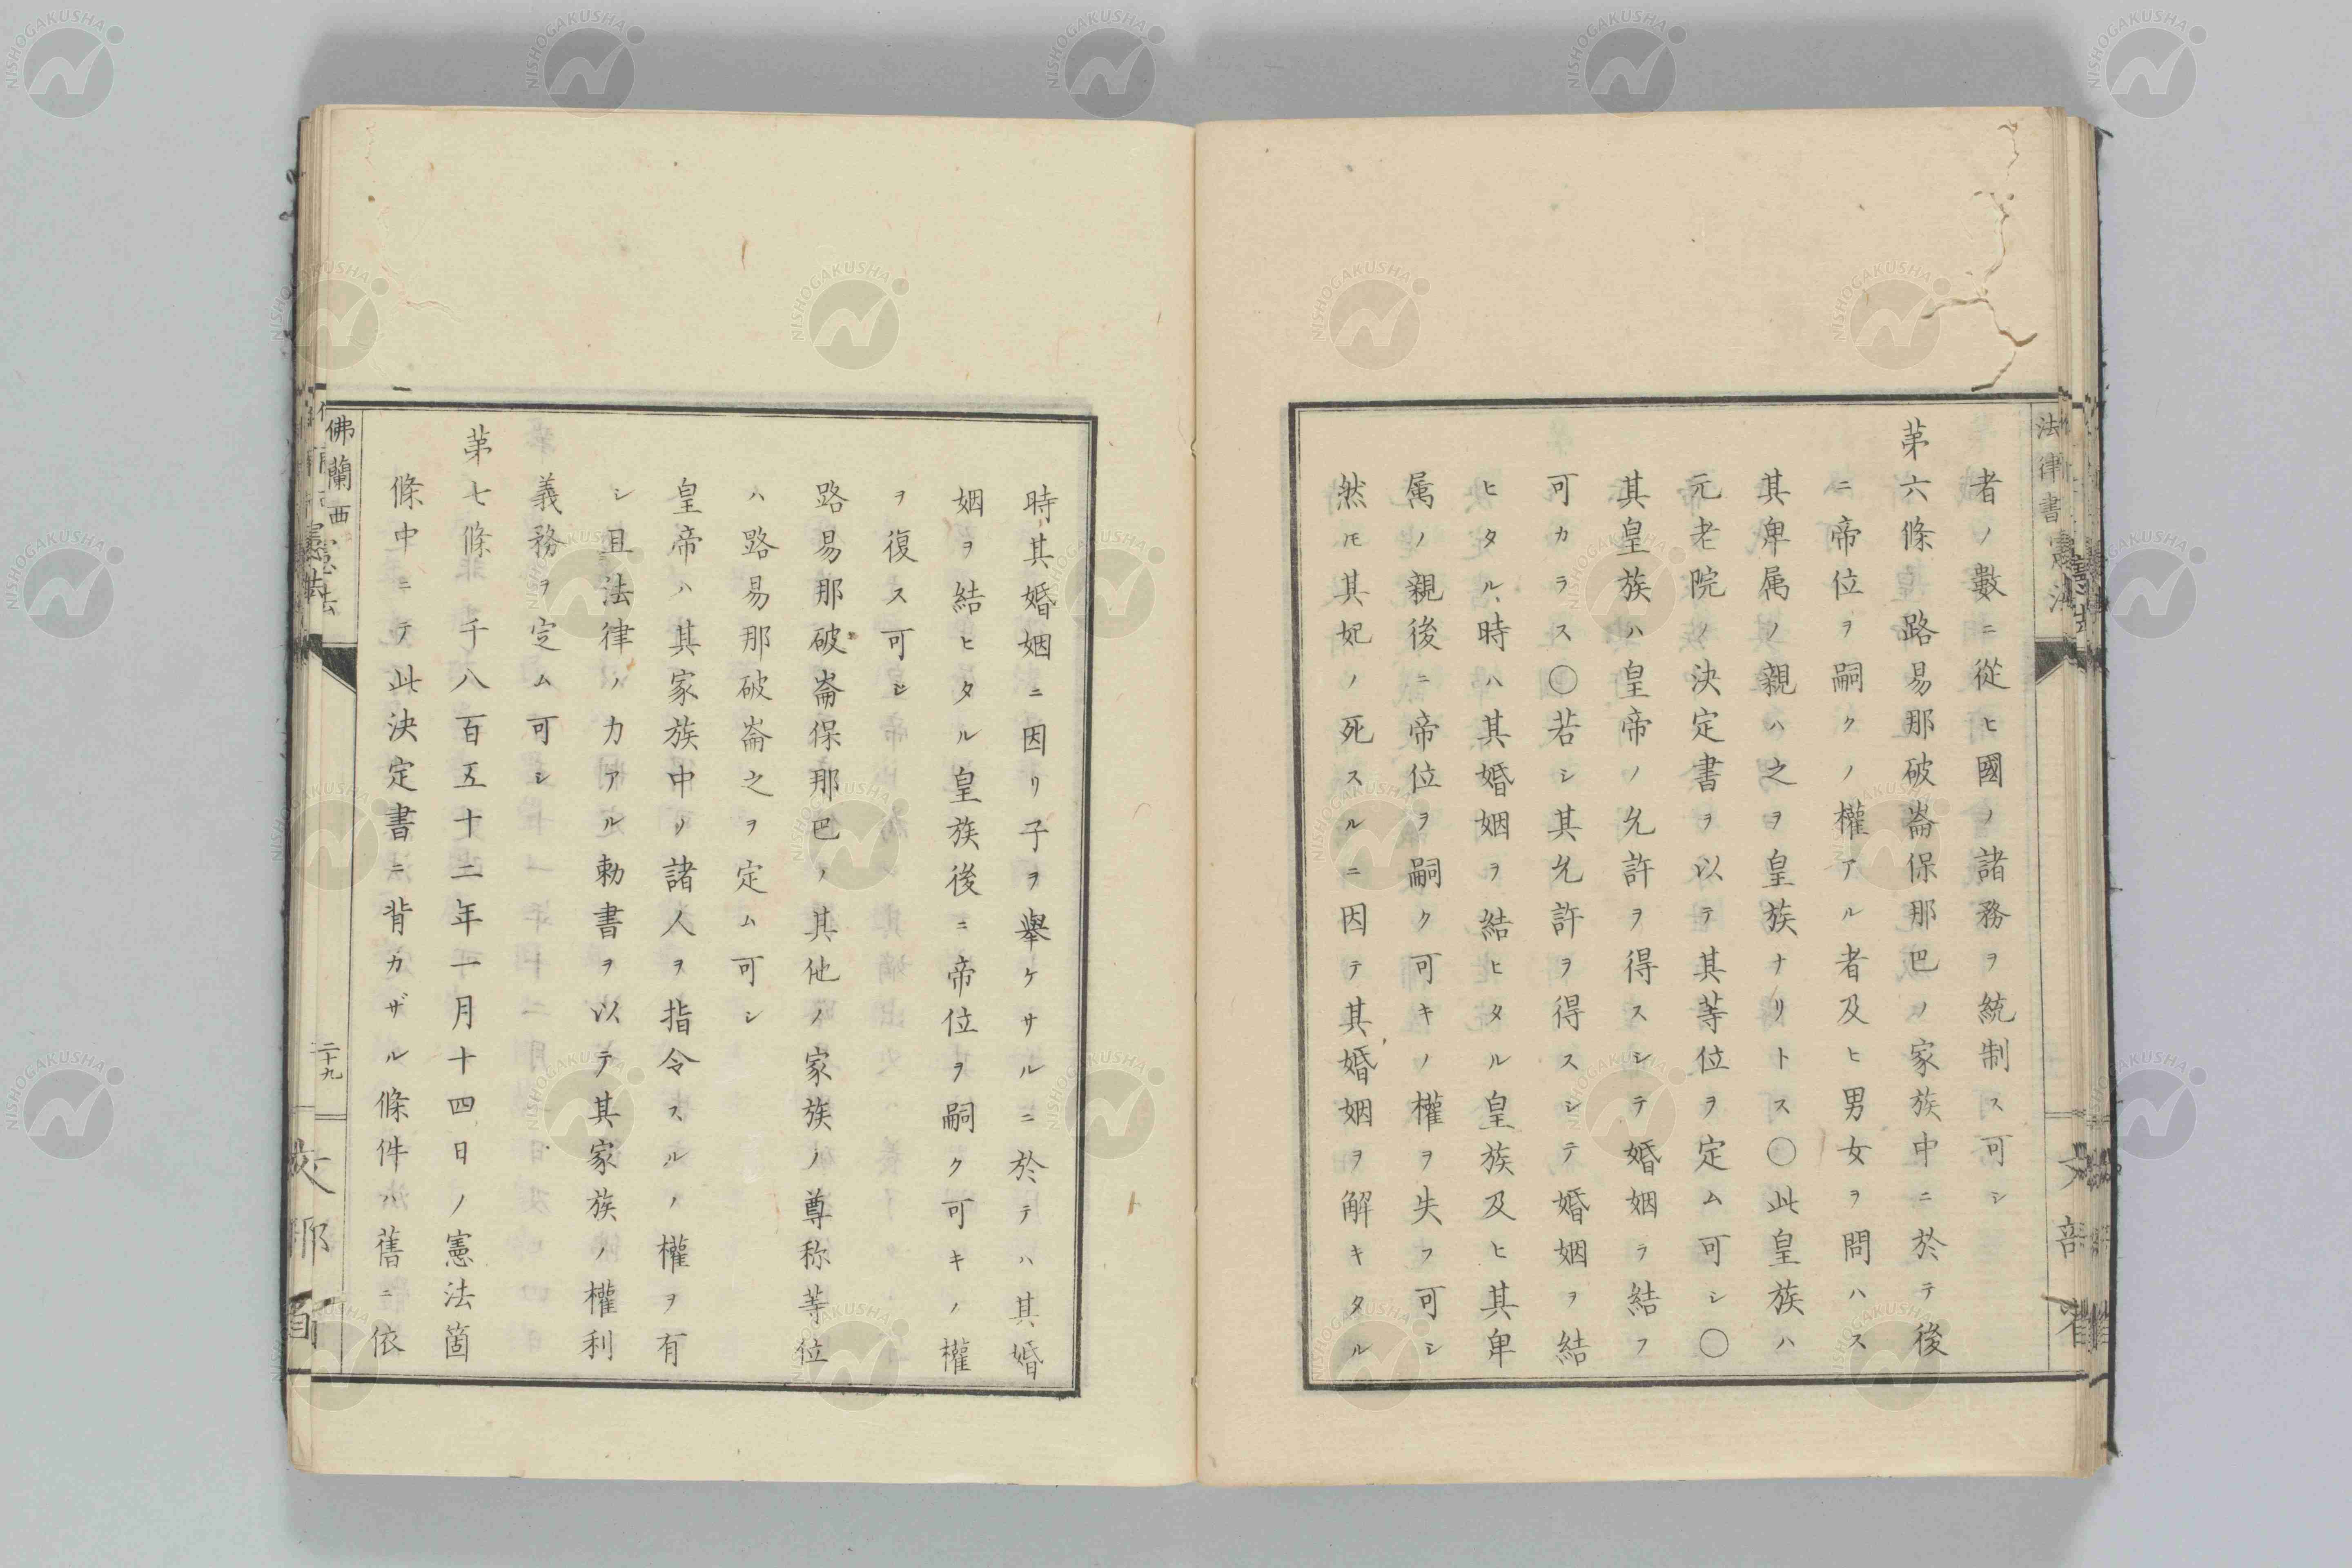 法律書
憲法
者ノ數ニ從ヒ國ノ諸務ヲ統制ス可シ
苐六條　路易那破崙保那巴ノ家族中ニ於テ後
ニ帝位ヲ嗣クノ權アル者及ヒ男女ヲ問ハス
其卑属ノ親ハ之ヲ皇族ナリトス〇此皇族ハ
元老院ノ決定書ヲ以テ其等位ヲ定ム可シ〇
其皇族ハ皇帝ノ允許ヲ得スシテ婚姻ヲ結フ
可カラス〇若シ其允許ヲ得スシテ婚姻ヲ結
ヒタル時ハ其婚姻ヲ結ヒタル皇族及ヒ其卑
属ノ親後ニ帝位ヲ嗣ク可キノ權ヲ失フ可シ
然𪜈其妃ノ死スルニ因テ其婚姻ヲ解キタル
時其婚姻ニ因リ子ヲ舉ケサルニ於テハ其婚
姻ヲ結ヒタル皇族後ニ帝位ヲ嗣ク可キノ權
ヲ復ス可シ
路易那破崙保那巴ノ其他ノ家族ノ尊称等位
ハ路易那破崙之ヲ定ム可シ
皇帝ハ其家族中ノ諸人ヲ指令スルノ權ヲ有
シ且法律ノ力アル勅書ヲ以テ其家族ノ權利
義務ヲ定ム可シ
苐七條　千八百五十二年一月十四日ノ憲法箇
條中ニテ此決定書ニ背カザル條件ハ舊ニ依
佛蘭西
憲法
二十九
NISHOGAKUSHA